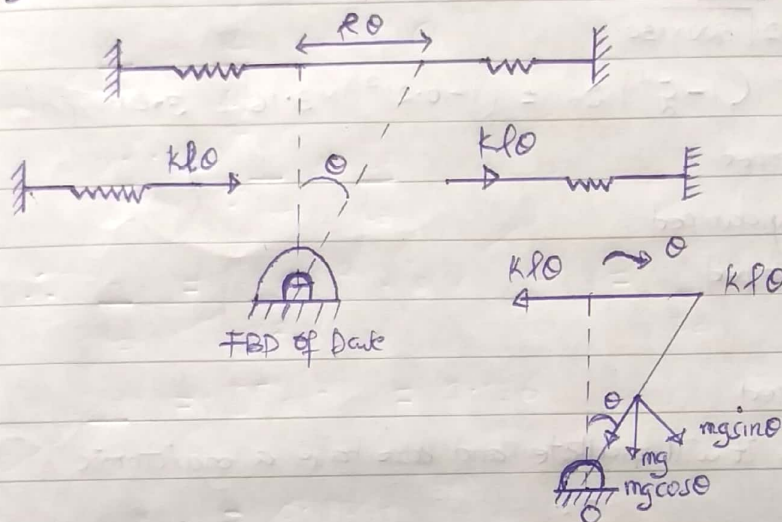 lθ
Klθ
Klθ
θ
Klθ
θ
Klθ
FBD of
θ
mgsinθ
mg
mgcosθ
O